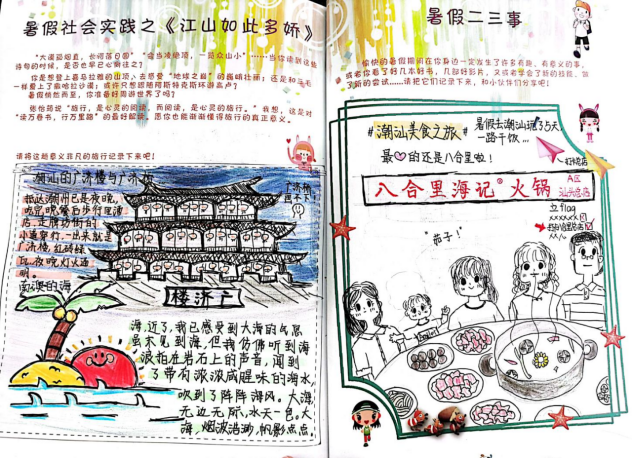 暑假社会实践之《江山如此多娇》
"大漠孤烟直，长河落日圆" "会当凌绝顶，一览众山小"……当你读到这些
诗句的时候，是否也早已心驰神往了？
你是想登上喜马拉雅的山顶，去感受"地球之巅"的巍峨壮丽；还是和三毛
一样爱上了撒哈拉沙漠；或许只想跟随阿斯特克斯环游高卢？
暑假悄然而至，你准备好周游世界了吗？
张怡筠说"旅行，是心灵的阅读，而阅读，是心灵的旅行。"我想，这是对
"读万卷书，行万里路"的最好解读。愿你也能渐渐懂得旅行的真正意义。
请将这趟意义非凡的旅行记录下来吧！
潮汕的广济楼与广济桥
抵达潮州已是夜晚，
广济楼
楼济广
南澳的海
海，近了，我已感受到大海的气息
虽未见到海，但我仿佛听到海
浪拍在岩石上的声音，闻到
了带有浓浓咸腥味的海水，
吹到了阵阵海风。大海，
无边无际，水天一色。大
海，烟波浩渺，帆影点点
暑假二三事
愉快的暑假期间在你身边一定发生了许多有趣、有意义的事，
或者你看了好几本好书，几部好影片，又或者学会了新的技能，做
了新的尝试……请把它们记录下来，和小伙伴们分享吧！
#潮汕美食之旅#
暑假去潮汕玩了5天
一路干饮…
最♡的还是八合里啦！
八合里海记®火锅
A区
立flag
"茄子！"